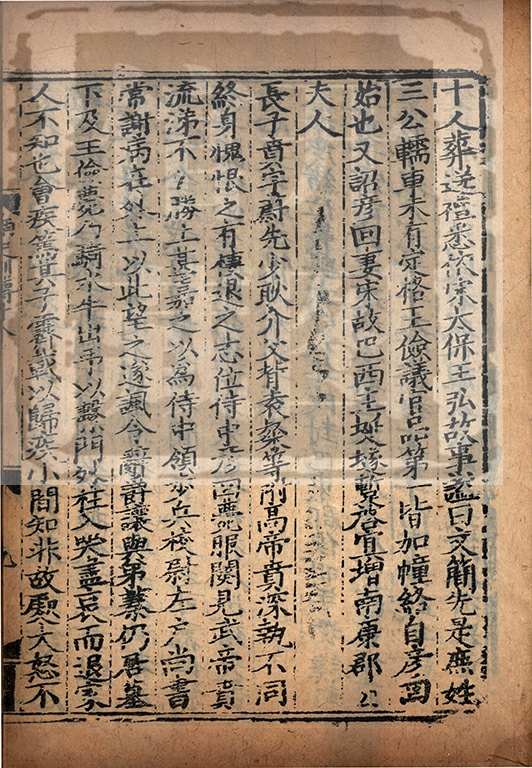 十人葬送禮悉依宋太保王弘故事諡曰文簡先是庶姓
三公轜車未有定格王儉議官品第一皆加幢絡自彥回
始也又詔彥回妻宋故巴西主埏隧暫啓宜增南康郡公
夫人
長子賁字蔚先少耿介父背袁粲等附高帝賁深執不同
終身愧恨之有棲退之志位侍中彥回薨服闋見武帝賁
流涕不自勝上甚嘉之以為侍中領步兵校尉左戶尚書
常謝病在外上以此望之遂諷令辭爵讓與弟蓁仍居墓
下及王儉薨乃騎水牛出弔以繫門外柱入哭盡哀而退家
人不知也會疾篤其子霽載以歸疾小間知非故處大怒不